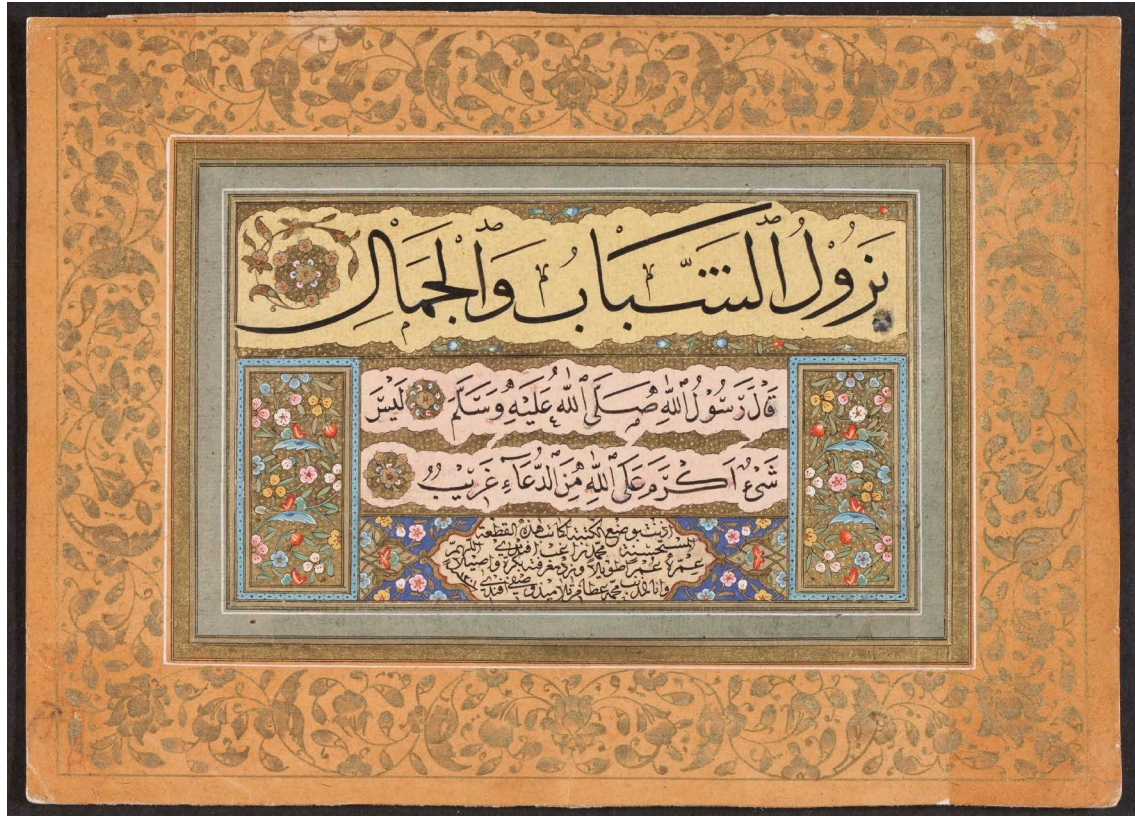 يَزُوْلُ ٱلشَّبَابُ وَٱلْجَمَالُ
قَالَ رَسُوْلُ ٱللّٰهِ صَلَّى ٱللّٰهُ عَلَيْهِ وَسَلَّمَ لَيْسَ
شَيْءٌ اَكْرَمَ عَلَى ٱللّٰهِ مِنَ الدُّعَاءِ غَرِيْبٌ
اذنت بوضع الكتبة لكاتب هذه القطعة
المستحسنة محمد نزا افندى اللهم
عمره عمرا طويلا وزد معرفته بكرة واصيلا
وانا المذنب محمد عطا من تلاميذ وصفى افندى